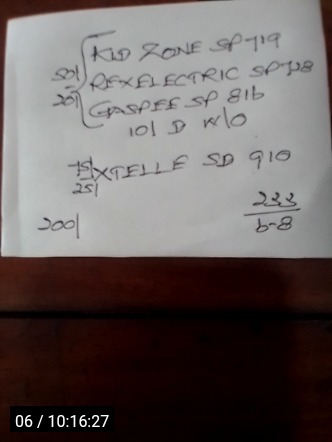 KID ZONE SP 719
50/ REXELECTRIC SP 728
20/ GASPEE SP 816
10/ D W/O
75/ XTELLE SD 910
25/
200/ 233
6-8
06 / 10:16:27